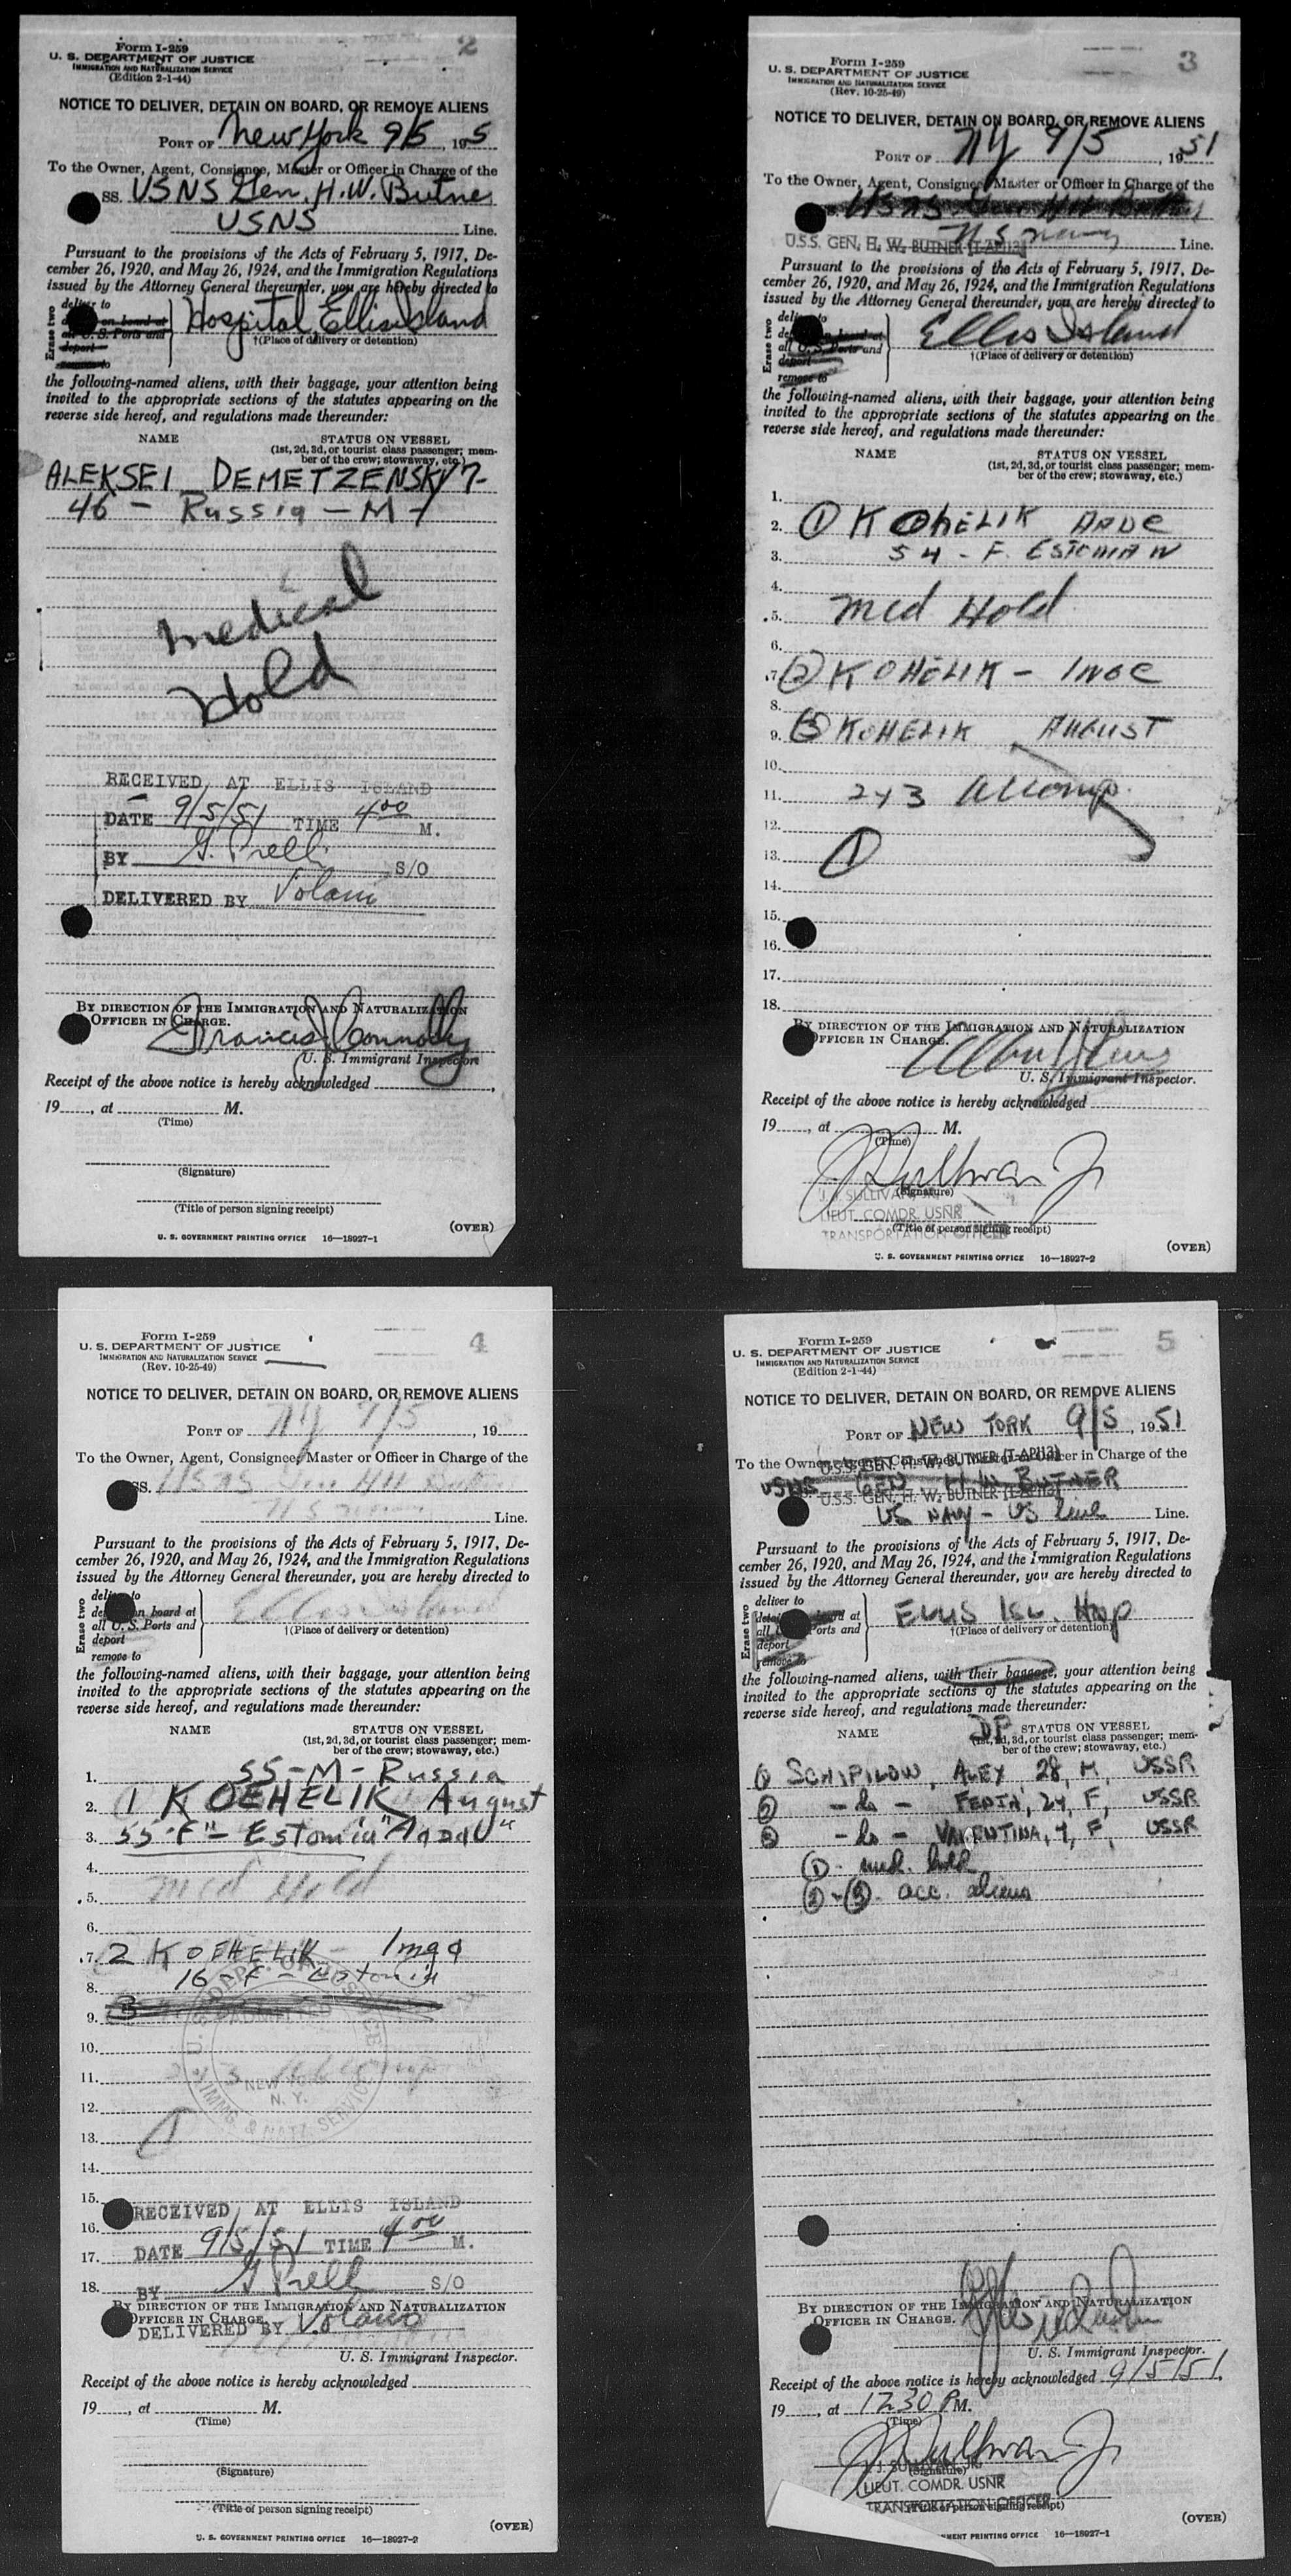 2
Form I-259
U. S. DEPARTMENT OF JUSTICE
IMMIGRATION AND NATURALIZATION SERVICE
(Edition 2-1-44)
NOTICE TO DELIVER, DETAIN ON BOARD, OR REMOVE ALIENS
PORT OF New York 9/5, 195
To the Owner, Agent, Consignee, Master or Officer in Charge of the
SS. USNS Gen. H.W. Butner
USNS Line.
Pursuant to the provisions of the Acts of February 5, 1917, De-
cember 26, 1920, and May 26, 1924, and the Immigration Regulations
issued by the Attorney General thereunder, you are hereby directed to
Erase two
deliver to
on board at
all U. S. Ports and
deport
remove to
Hospital, Ellis Island
†(Place of delivery or detention)
the following-named aliens, with their baggage, your attention being
invited to the appropriate sections of the statutes appearing on the
reverse side hereof, and regulations made thereunder:
NAME STATUS ON VESSEL
(1st, 2d, 3d, or tourist class passenger; mem-
ber of the crew; stowaway, etc.)
ALEKSEI DEMETZENSKY
46 - Russia - M -
Medical
Hold
RECEIVED AT ELLIS ISLAND
DATE 9/5/51 TIME 4 00 M.
BY G. Prelli S/O
DELIVERED BY Volano
BY DIRECTION OF THE IMMIGRATION AND NATURALIZATION
OFFICER IN CHARGE.
Francis J Connolly
U. S. Immigrant Inspector
Receipt of the above notice is hereby acknowledged
19 , at M.
(Time)
(Signature)
(Title of person signing receipt)
(OVER)
U. S. GOVERNMENT PRINTING OFFICE 16—18927-1
3
Form I-259
U. S. DEPARTMENT OF JUSTICE
IMMIGRATION AND NATURALIZATION SERVICE
(Rev. 10-25-49)
NOTICE TO DELIVER, DETAIN ON BOARD, OR REMOVE ALIENS
PORT OF NY 9/5, 1951
To the Owner, Agent, Consignee, Master or Officer in Charge of the
U.S.S. GEN. H. W. BUTNER (T-AP113)
U S Navy Line.
Pursuant to the provisions of the Acts of February 5, 1917, De-
cember 26, 1920, and May 26, 1924, and the Immigration Regulations
issued by the Attorney General thereunder, you are hereby directed to
Erase two
deliver to
on board at
all U. S. Ports and
deport
remove to
Ellis Island
†(Place of delivery or detention)
the following-named aliens, with their baggage, your attention being
invited to the appropriate sections of the statutes appearing on the
reverse side hereof, and regulations made thereunder:
NAME STATUS ON VESSEL
(1st, 2d, 3d, or tourist class passenger; mem-
ber of the crew; stowaway, etc.)
1.
2. (1) KOHELIK AADE
3. 54 - F. ESTONIAN
4.
5. Med Hold
6.
7. (2) KOHELIK - INGE
8.
9. (3) KOHELIK AUGUST
10.
11. 2 y 3 Accomp
12.
13. (1)
14.
15.
16.
17.
18.
BY DIRECTION OF THE IMMIGRATION AND NATURALIZATION
OFFICER IN CHARGE.
U. S. Immigrant Inspector.
Receipt of the above notice is hereby acknowledged
19 , at M.
(Time)
J J Sullivan Jr
(Signature)
J. J. SULLIVAN, JR.
LIEUT. COMDR. USNR
(Title of person signing receipt)
TRANSPORTATION OFFICER
(OVER)
U. S. GOVERNMENT PRINTING OFFICE 16—18927-2
4
Form I-259
U. S. DEPARTMENT OF JUSTICE
IMMIGRATION AND NATURALIZATION SERVICE
(Rev. 10-25-49)
NOTICE TO DELIVER, DETAIN ON BOARD, OR REMOVE ALIENS
PORT OF NY 9/5, 19
To the Owner, Agent, Consignee, Master or Officer in Charge of the
SS. USNS Gen HH Butner
U S Navy Line.
Pursuant to the provisions of the Acts of February 5, 1917, De-
cember 26, 1920, and May 26, 1924, and the Immigration Regulations
issued by the Attorney General thereunder, you are hereby directed to
Erase two
deliver to
detain on board at
all U. S. Ports and
deport
remove to
Ellis Island
†(Place of delivery or detention)
the following-named aliens, with their baggage, your attention being
invited to the appropriate sections of the statutes appearing on the
reverse side hereof, and regulations made thereunder:
NAME STATUS ON VESSEL
(1st, 2d, 3d, or tourist class passenger; mem-
ber of the crew; stowaway, etc.)
1. 55 - M - Russia
2. 1 KOEHELIK, August
3. 55 - F " - Estonia " Aadu "
4.
5. Med Hold
6.
7. 2 KOEHELIK - Imga
8. 16 - F - Estonia
9. 3
10.
11. 2 y 3 Accomp
12.
13. 1
14.
U. S. DEPT. OF JUSTICE
ADMITTED
NEW YORK
N. Y.
IMMIG. & NATZ. SERVICE
15. RECEIVED AT ELLIS ISLAND
16.
17. DATE 9/5/51 TIME 4 00 M.
18. BY G Prelli S/O
BY DIRECTION OF THE IMMIGRATION AND NATURALIZATION
OFFICER IN CHARGE.
DELIVERED BY Volano
U. S. Immigrant Inspector.
Receipt of the above notice is hereby acknowledged
19 , at M.
(Time)
(Signature)
(Title of person signing receipt)
(OVER)
U. S. GOVERNMENT PRINTING OFFICE 16—18927-2
5
Form I-259
U. S. DEPARTMENT OF JUSTICE
IMMIGRATION AND NATURALIZATION SERVICE
(Edition 2-1-44)
NOTICE TO DELIVER, DETAIN ON BOARD, OR REMOVE ALIENS
PORT OF NEW YORK 9/5, 1951
To the Owner, Agent, Consignee, Master or Officer in Charge of the
U.S.S. GEN. H. W. BUTNER (T-AP113)
USNS GEN H W BUTNER
U.S.S. GEN. H. W. BUTNER (T-AP113)
US NAVY - US Line Line.
Pursuant to the provisions of the Acts of February 5, 1917, De-
cember 26, 1920, and May 26, 1924, and the Immigration Regulations
issued by the Attorney General thereunder, you are hereby directed to
Erase two
deliver to
detain on board at
all U. S. Ports and
deport
remove to
ELLIS ISL. Hosp
†(Place of delivery or detention)
the following-named aliens, with their baggage, your attention being
invited to the appropriate sections of the statutes appearing on the
reverse side hereof, and regulations made thereunder:
NAME DP STATUS ON VESSEL
(1st, 2d, 3d, or tourist class passenger; mem-
ber of the crew; stowaway, etc.)
(1) SCHIPILOW, ALEX, 28, M, USSR
(2) - do - FEDIA, 24, F, USSR
(3) - do - VALENTINA, 7, F, USSR
(1) - med. hold
(2) - (3) - acc. aliens
BY DIRECTION OF THE IMMIGRATION AND NATURALIZATION
OFFICER IN CHARGE.
U. S. Immigrant Inspector.
Receipt of the above notice is hereby acknowledged 9/5/51,
19 , at 1230 PM.
(Time)
J J Sullivan Jr
J. J. SULLIVAN, JR.
(Signature)
LIEUT. COMDR. USNR
TRANSPORTATION OFFICER
(Title of person signing receipt)
(OVER)
MENT PRINTING OFFICE 16—18927-1